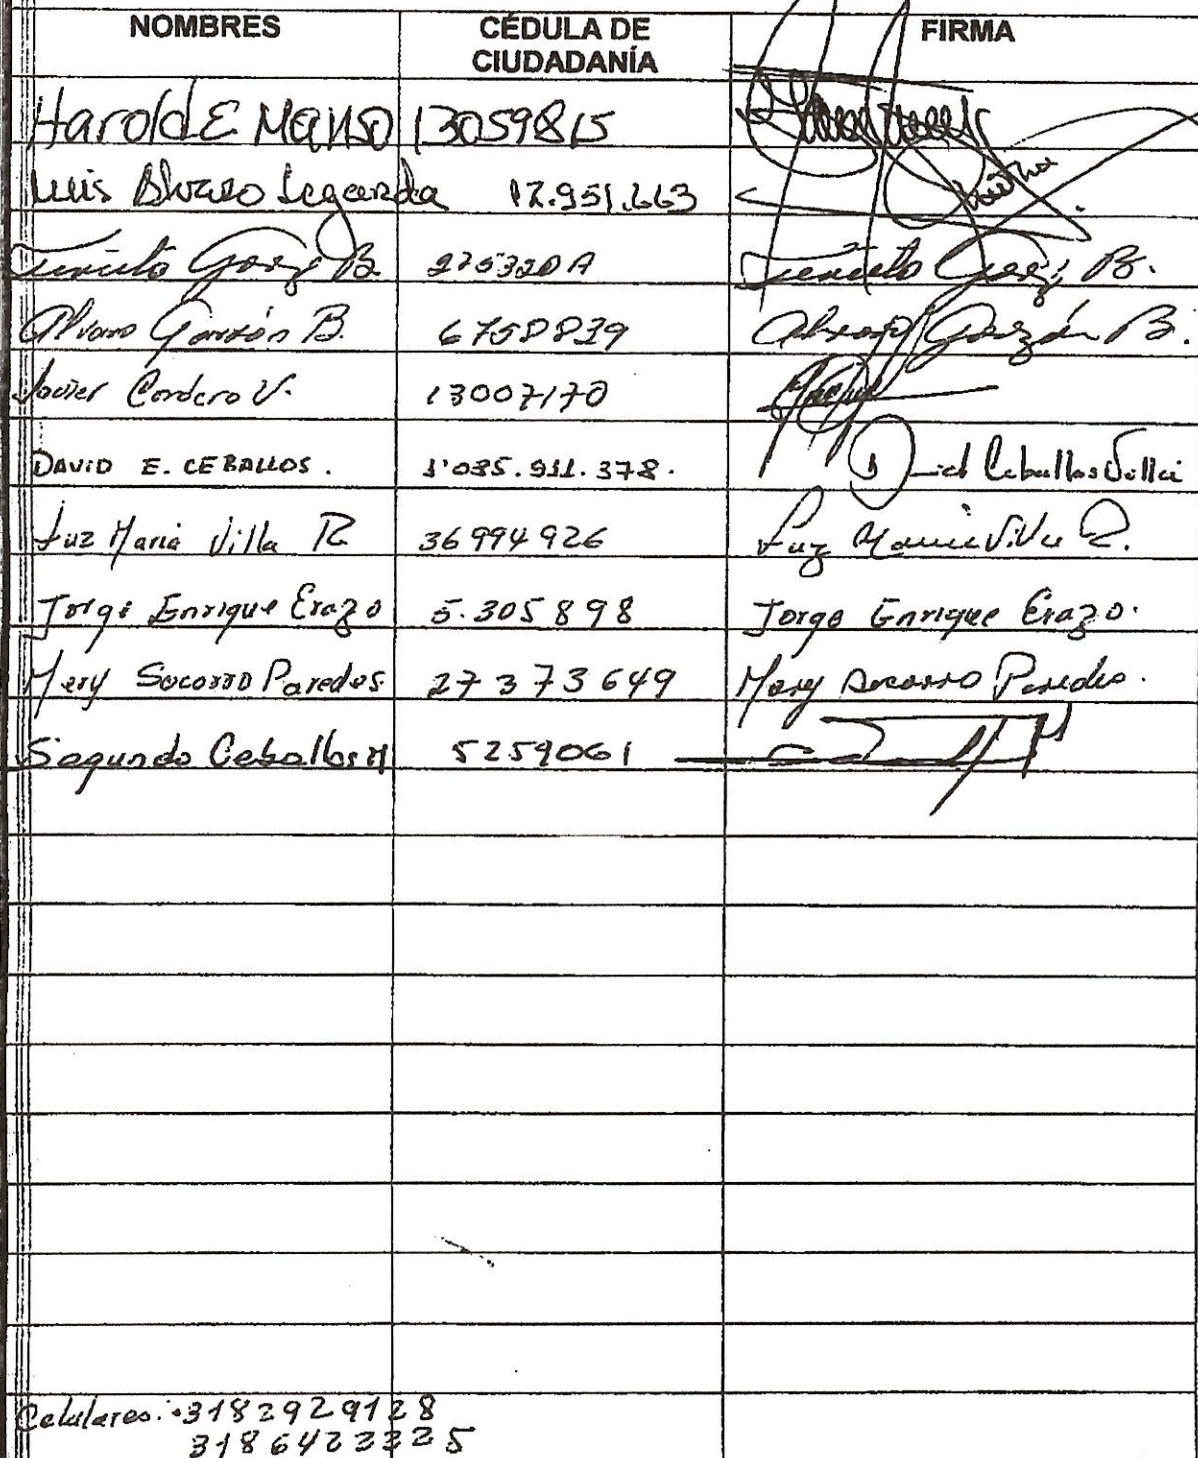 NOMBRES CÉDULA DE CIUDADANÍA FIRMA
Harold E 13059815
Luis 12.951.663
B. B.
Alvaro Garzón B. 6758839 Alvaro Garzón B.
Javier Cordero V. 13007170
DAVID E. CEBALLOS. 1'085.911.378. David Ceballos
Luz Maria Villa R 36994926 Luz Maria Villa R.
Jorge Enrique Erazo 5.305898 Jorge Enrique Erazo.
Mery Socorro Paredes 27373649 Mery Socorro Paredes.
Segundo Ceballos M 5259061
Celulares: 3182929128
3186423325